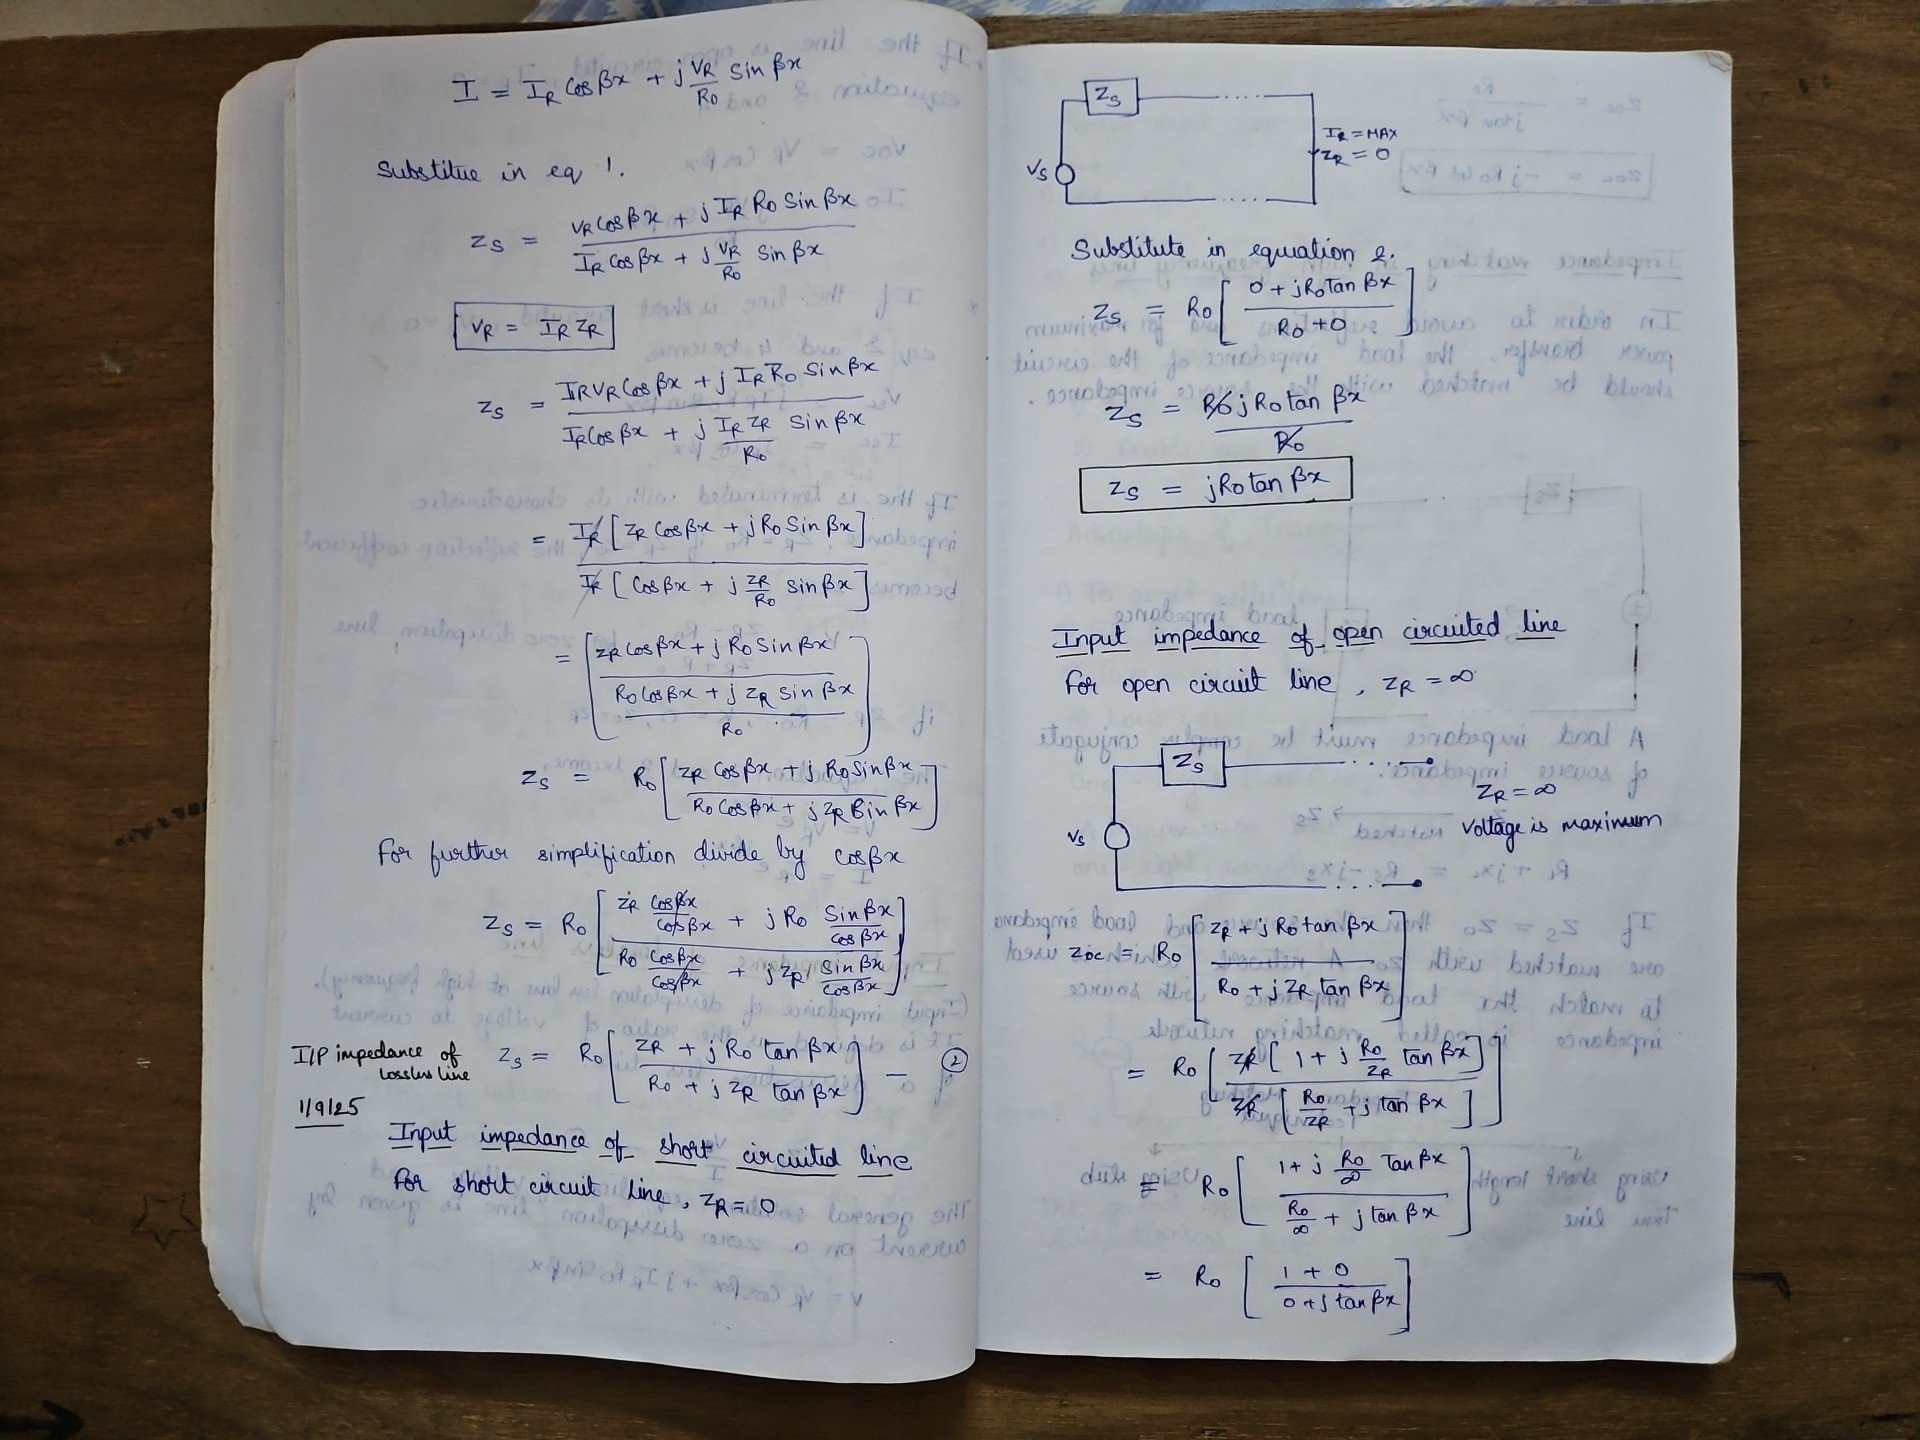 I = I_R Cosβx + j V_R/R_0 Sin βx
Substitue in eq 1.
Z_S = (V_R Cosβx + j I_R R_0 Sin βx) / (I_R Cosβx + j V_R/R_0 Sin βx)
V_R = I_R Z_R
Z_S = (I_R V_R Cosβx + j I_R R_0 Sin βx) / (I_R Cosβx + j (I_R Z_R)/R_0 Sin βx)
= I_R [Z_R Cosβx + j R_0 Sin βx] / I_R [Cosβx + j Z_R/R_0 Sin βx]
= [(Z_R Cosβx + j R_0 Sin βx) / ((R_0 Cosβx + j Z_R Sin βx)/R_0)]
Z_S = R_0 [(Z_R Cosβx + j R_0 Sin βx) / (R_0 Cosβx + j Z_R Sin βx)]
For further simplification divide by cosβx
Z_S = R_0 [(Z_R Cosβx/Cosβx + j R_0 Sinβx/Cosβx) / (R_0 Cosβx/Cosβx + j Z_R Sinβx/Cosβx)]
I/P impedance of lossless line Z_S = R_0 [(Z_R + j R_0 tan βx) / (R_0 + j Z_R tan βx)] — ②
1/9/25
Input impedance of short circuited line
For short circuit line, Z_R = 0
Z_S
I_R = MAX
Z_R = 0
V_S
Substitute in equation 2.
Z_S = R_0 [(0 + j R_0 Tan βx) / (R_0 + 0)]
Z_S = R_0 j R_0 tan βx / R_0
Z_S = j R_0 tan βx
Input impedance of open circuited line
For open circuit line, Z_R = ∞
Z_S
Z_R = ∞
V_S
Voltage is maximum
Z_OC = R_0 [(Z_R + j R_0 tan βx) / (R_0 + j Z_R tan βx)]
= R_0 [Z_R [1 + j R_0/Z_R tan βx] / Z_R [R_0/Z_R + j tan βx]]
= R_0 [(1 + j R_0/∞ Tan βx) / (R_0/∞ + j tan βx)]
= R_0 [(1 + 0) / (0 + j tan βx)]